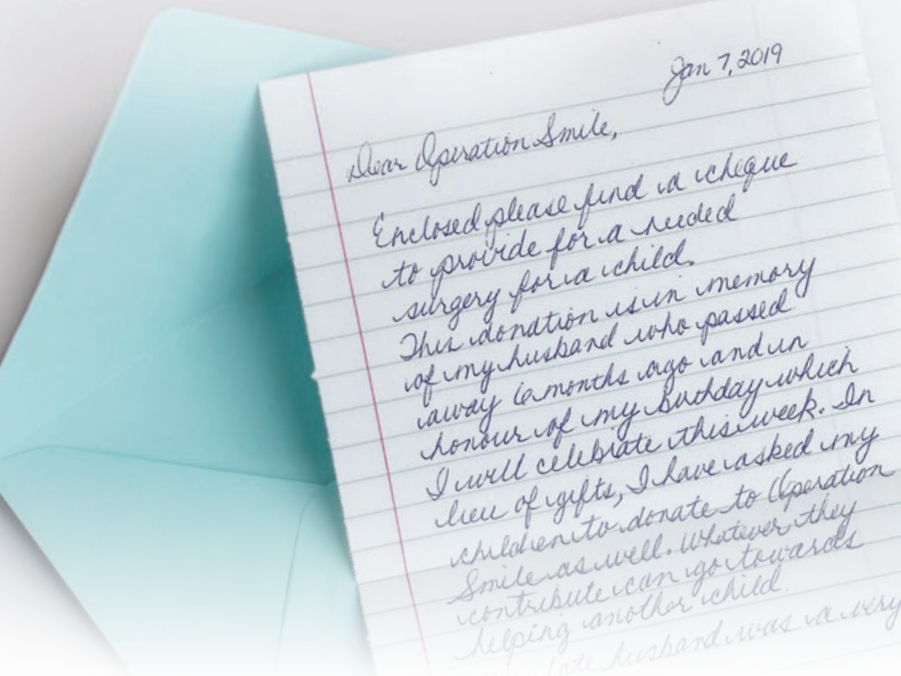 Jan 7, 2019
Dear Operation Smile,
Enclosed please find a cheque
to provide for a needed
surgery for a child.
This donation is in memory
of my husband who passed
away 6 months ago and in
honour of my birthday which
I will celebrate this week. In
lieu of gifts, I have asked my
children to donate to Operation
Smile as well. Whatever they
contribute can go towards
helping another child.
late husband was a very